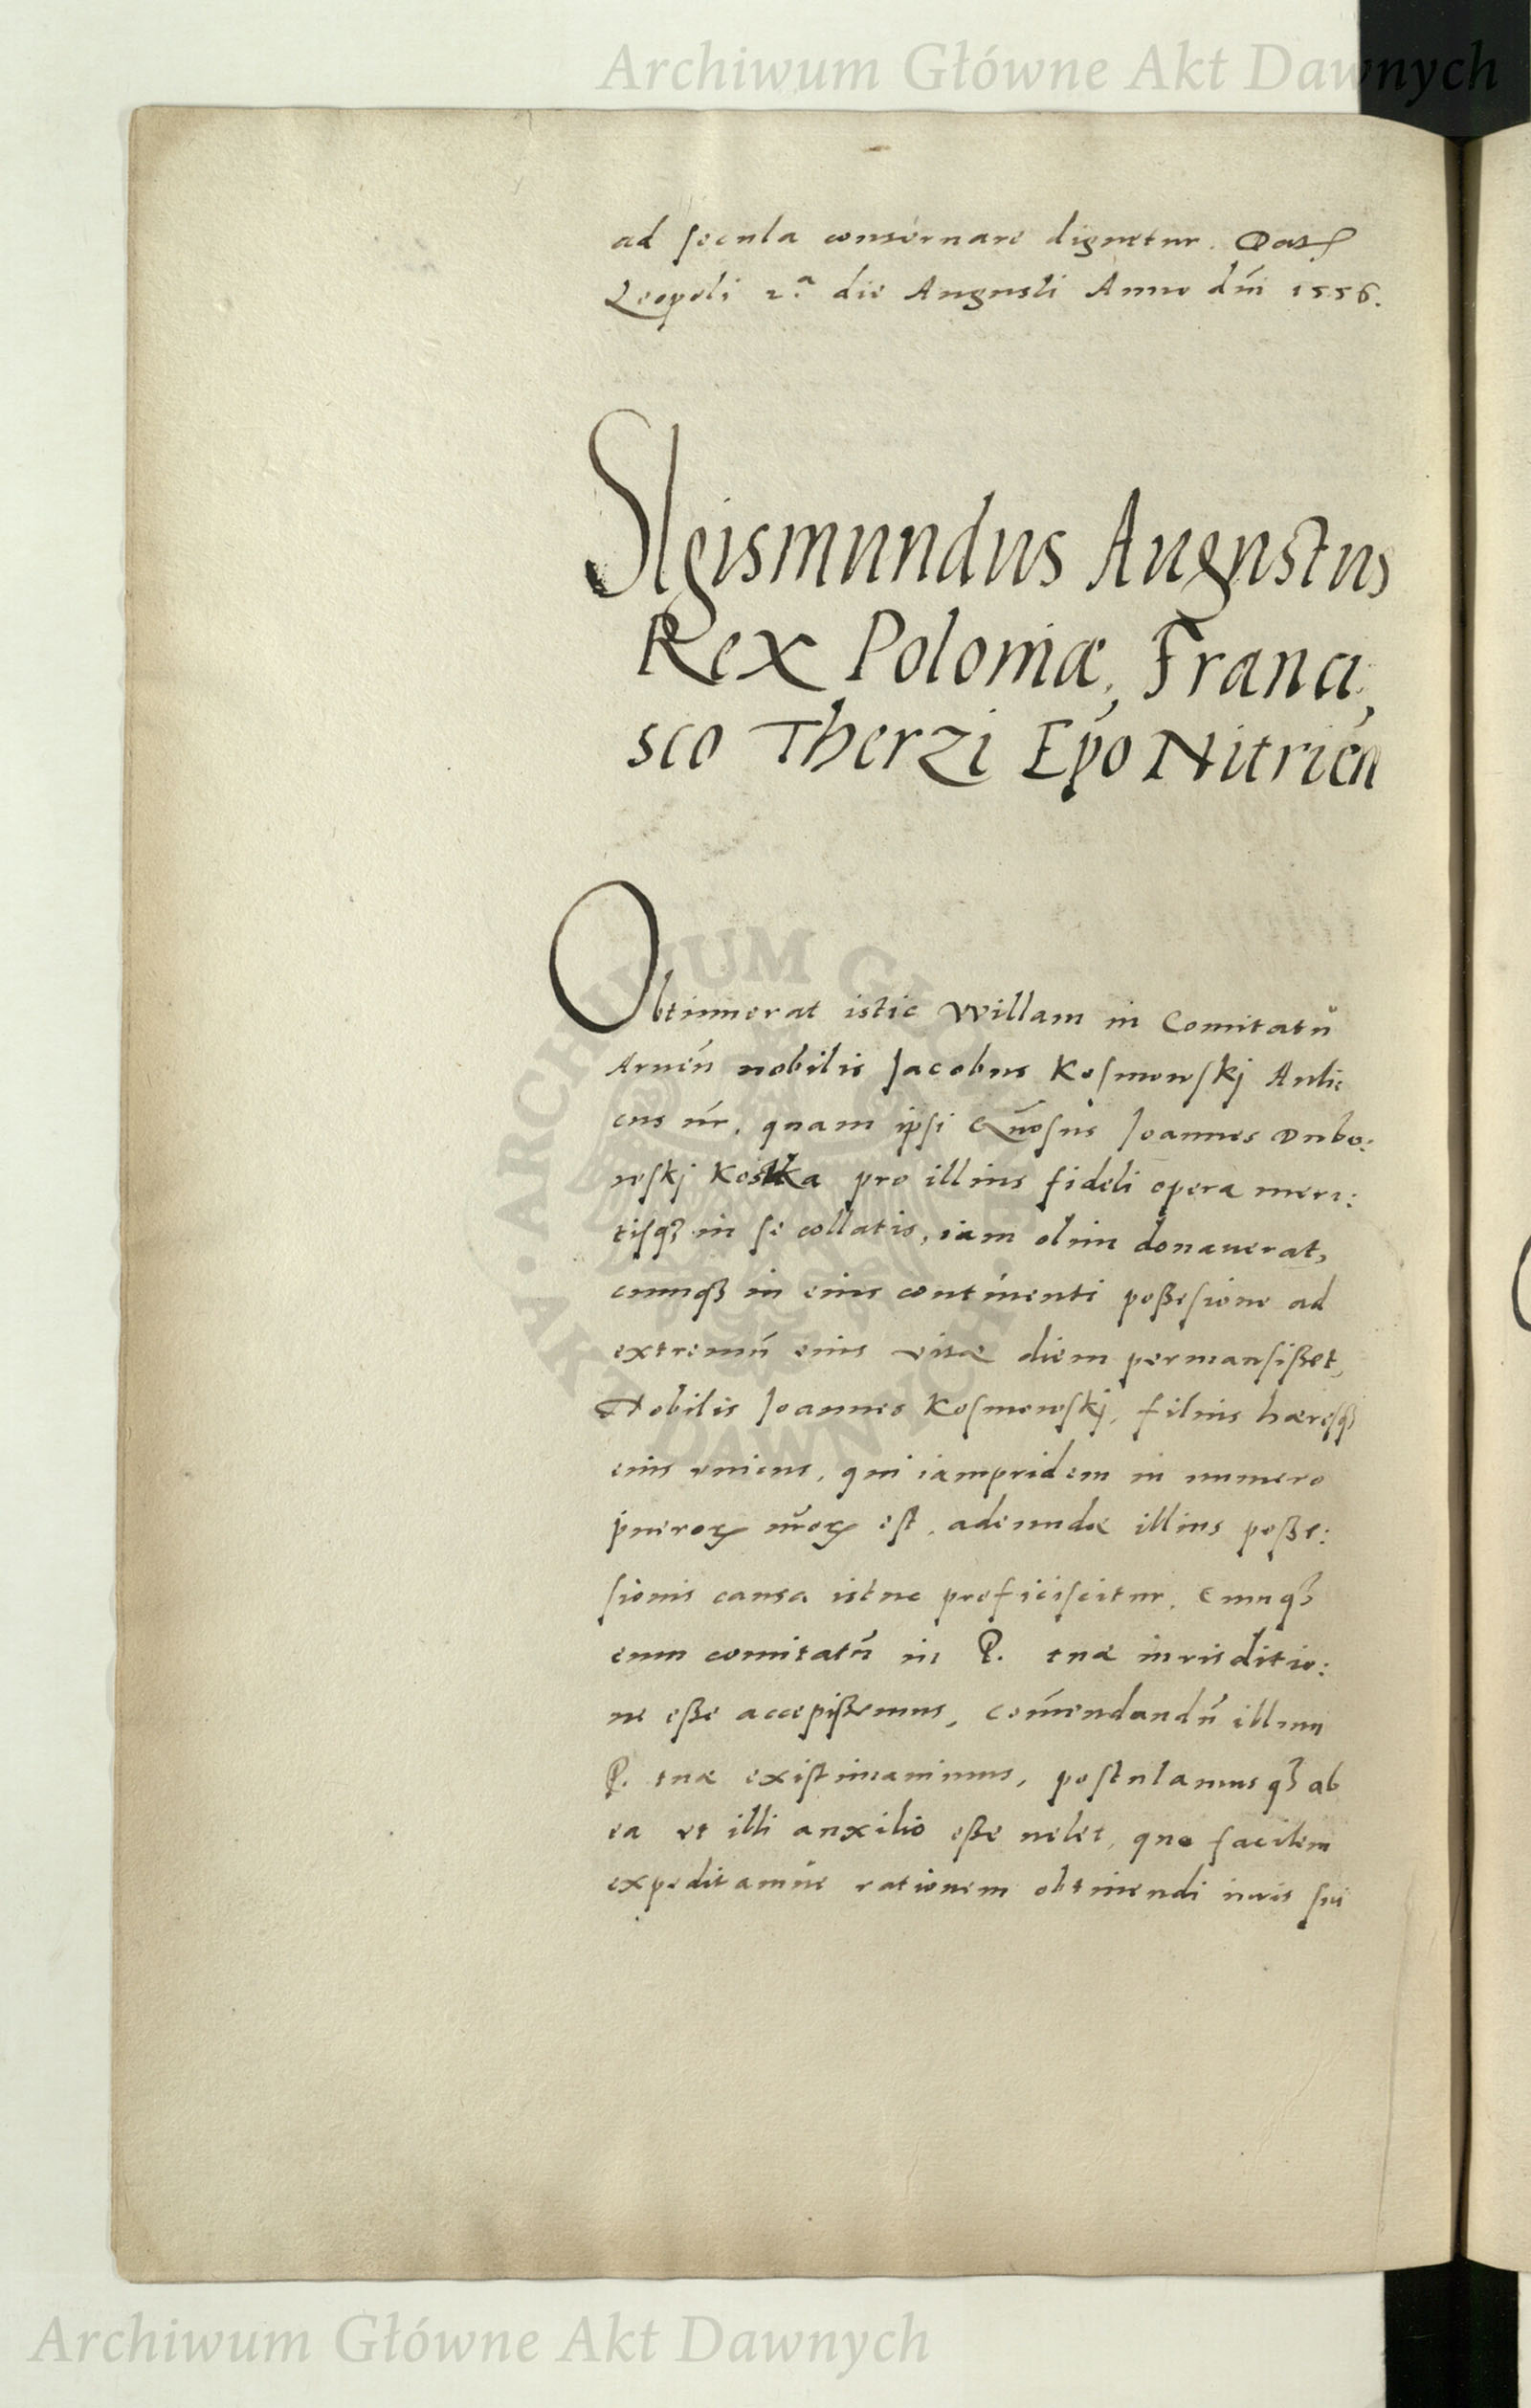 Archiwum Główne Akt Dawnych
ad secula conseruare dignetur. Dat
Leopoli 2.a die Augusti Anno dni 1556.
SIgismundus Augustus
Rex Poloniæ, Franci,
sco Therzi Epo Nitrien
Obtinuerat istic Willam in Comitatū
Aruen nobilis Jacobus Kosmowskj Auli:
cus nr, quam ipsi Gnosus Joannes Dubo:
wskj Kostka pro illius fideli opera meri:
tisqꝫ in se collatis, iam olim donauerat,
cumqꝫ in eius continenti poßesione ad
extremū eius vitæ diem permansißet,
Nobilis Joannes Kosmowskj, filius hæresqꝫ
eius vnicus, qui iampridem in numero
pueroꝝ nroꝝ est, adeundæ illius poße:
sionis causa istuc proficiscitur. Cumqꝫ
eum comitatū in P. tuæ iurisditio:
ne eße accepißemus, comendandū illum
P. tuæ existimauimus, postulamusqꝫ ab
ea vt illi auxilio eße uelet, quo facilem
expeditamue rationem obtinendi iuris sui
ARCHIWUM GŁÓWNE · AKT DAWNYCH ·
Archiwum Główne Akt Dawnych